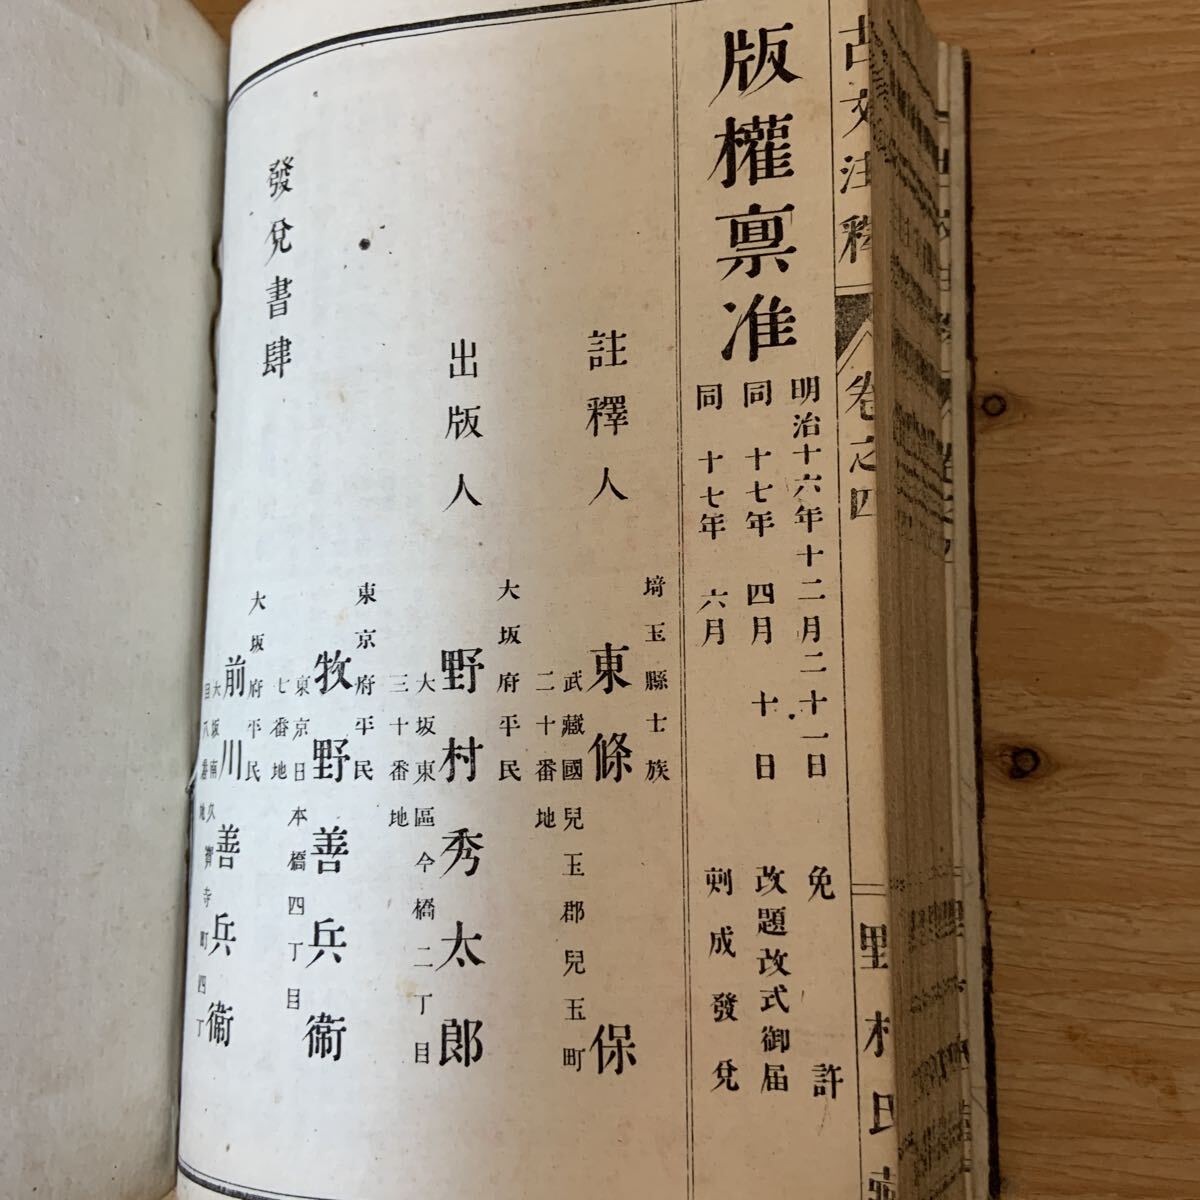 古文注釋
卷之四
野村氏
版權稟准
明治十六年十二月二十一日 免許
同 十七年 四月 十日 改題改式御届
同 十七年 六月 刻成發兌
註釋人
埼玉縣士族
東條 保
武藏國兒玉郡兒玉町
二十番地
出版人
大坂府平民
野村秀太郎
大坂東區今橋二丁目
三十番地
發兌書肆
東京府平民
牧野善兵衛
東京日本橋四丁目
七番地
大坂府平民
前川善兵衛
大坂南久寶寺町四丁
目八番地